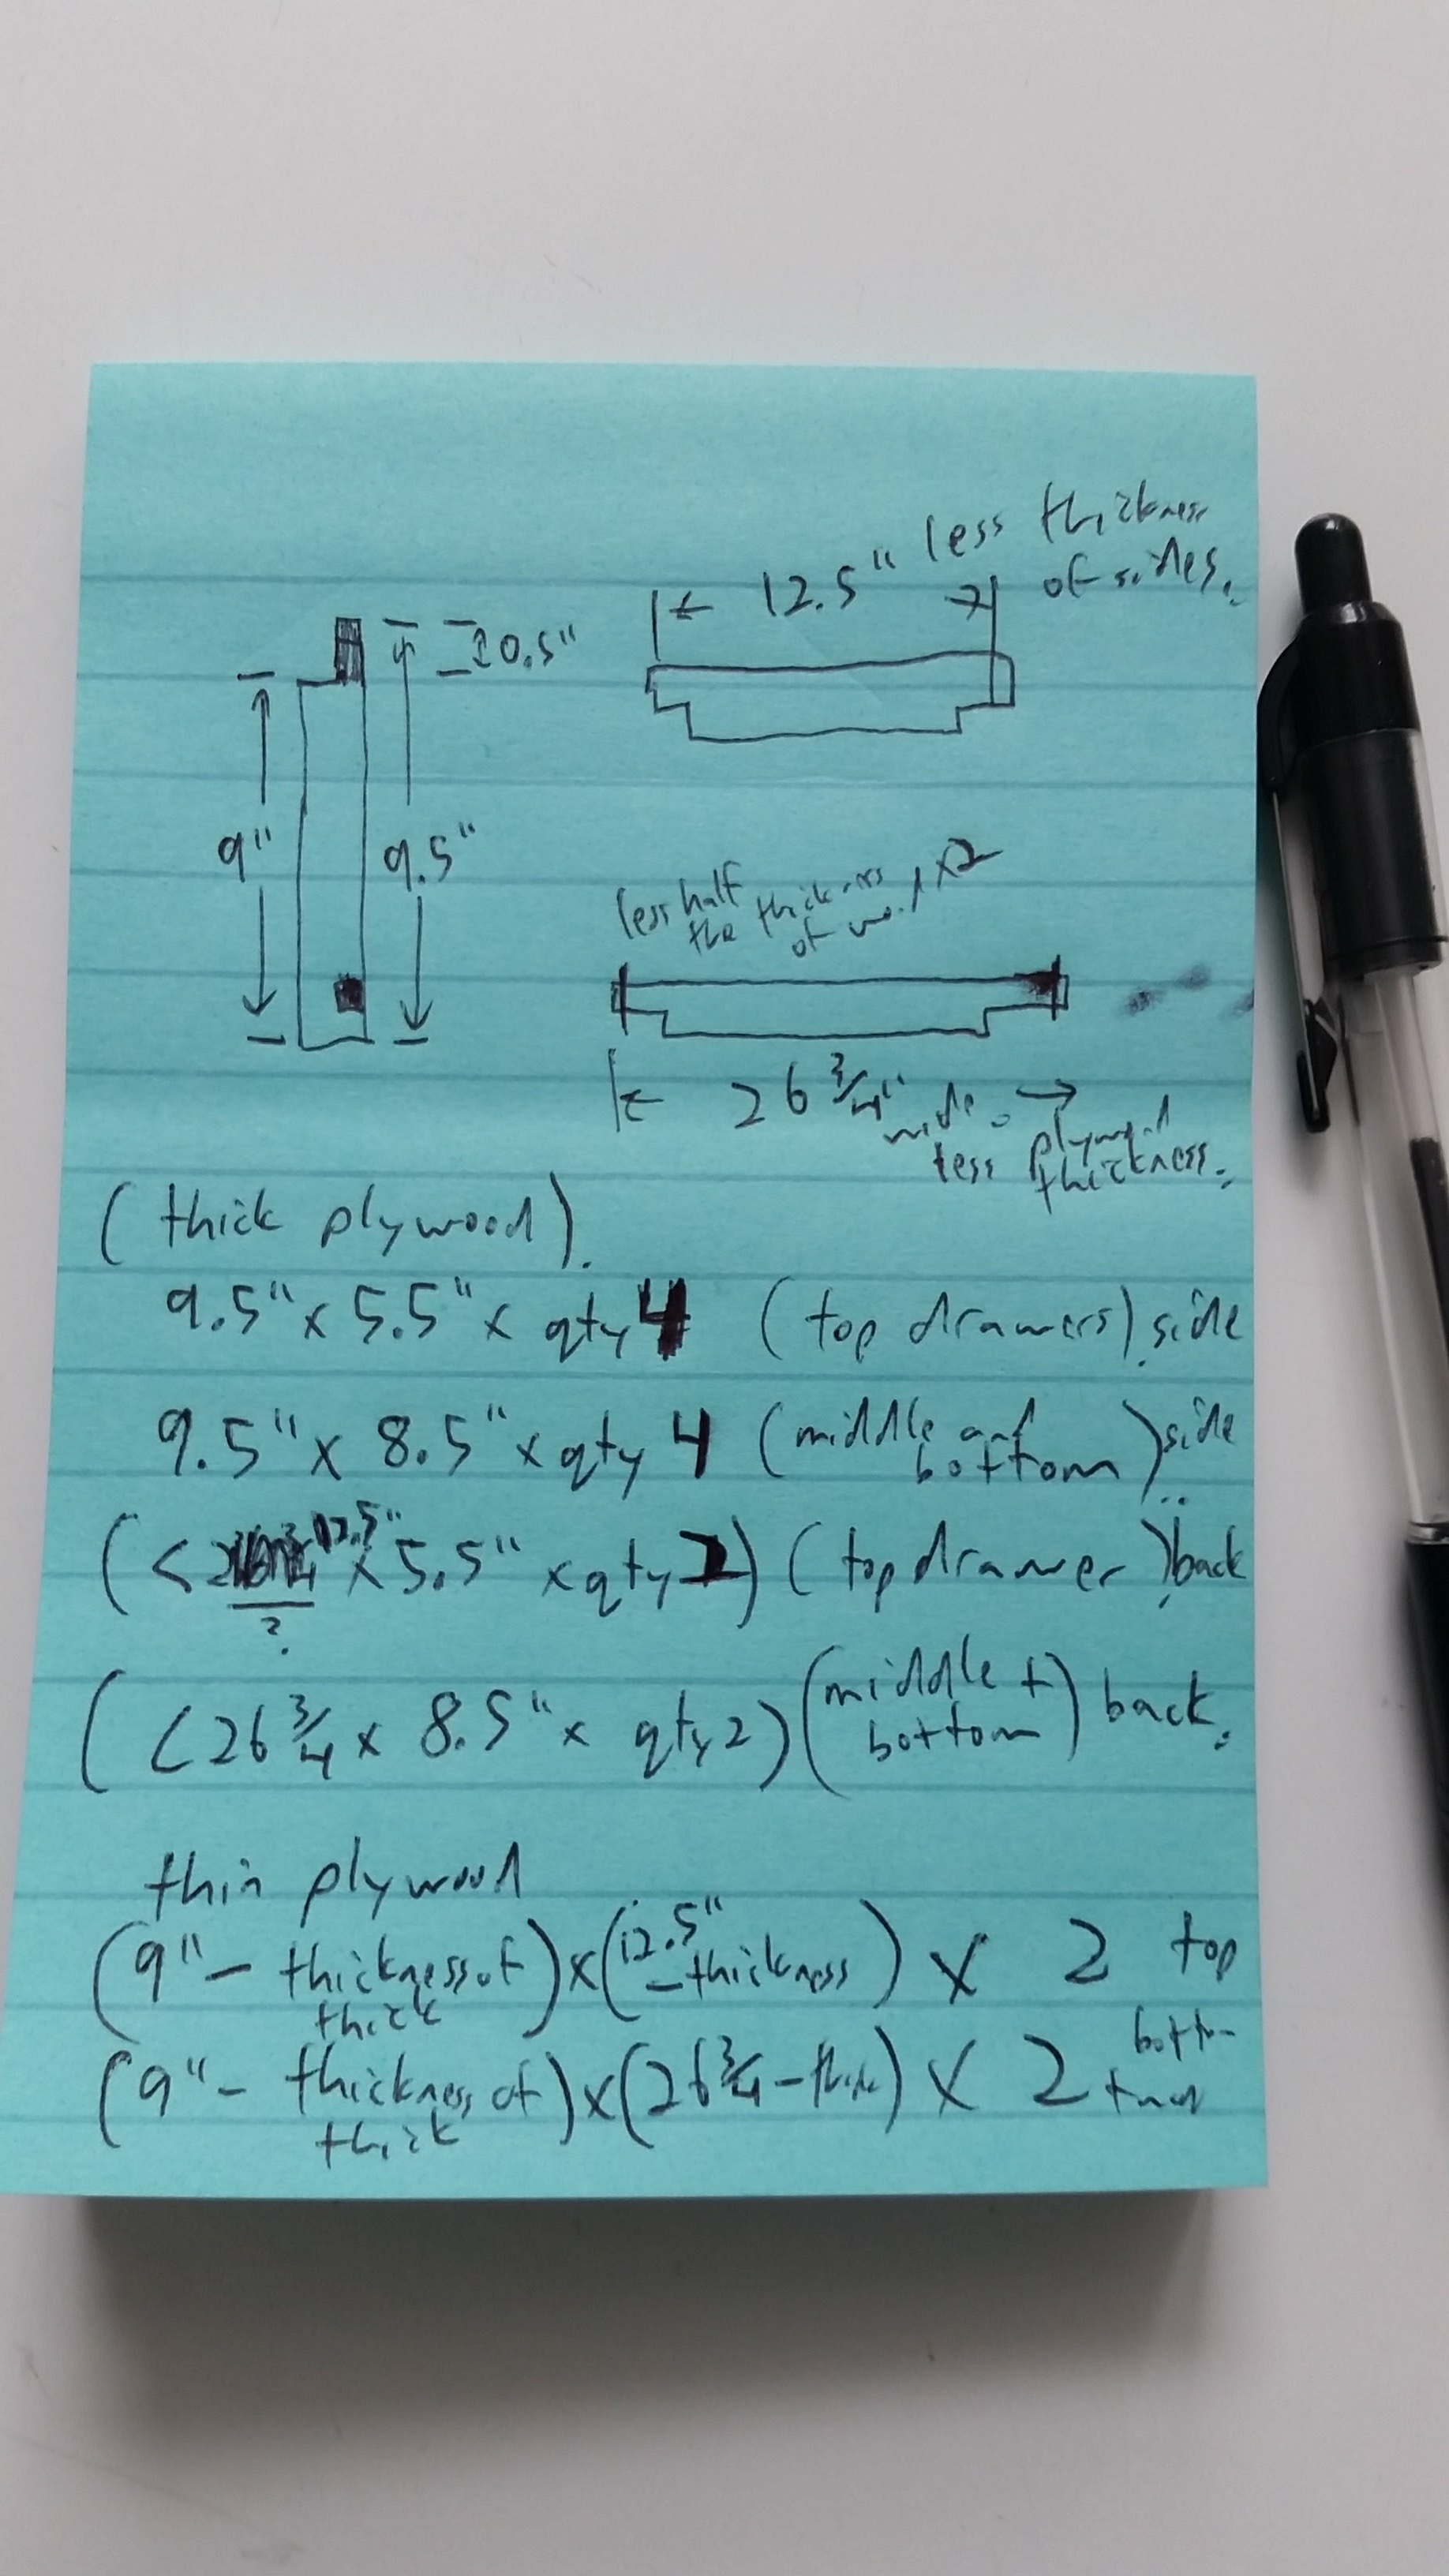 12.5" less thickness
of sides.
0.5"
9"
9.5"
less half
the thickness x2
of
26 3/4" wide
less plywood
thickness.
(thick plywood).
9.5" x 5.5" x qty 4 (top drawers) side
9.5" x 8.5" x qty 4 (middle and bottom) side
(< 12.5" x 5.5" x qty 2) (top drawer) back
?
(<26 3/4 x 8.5" x qty 2) (middle + bottom) back.
thin plywood
(9" - thickness of thick) x (12.5" - thickness) x 2 top
(9" - thickness of thick) x (26 3/4 - thick) x 2 bottom